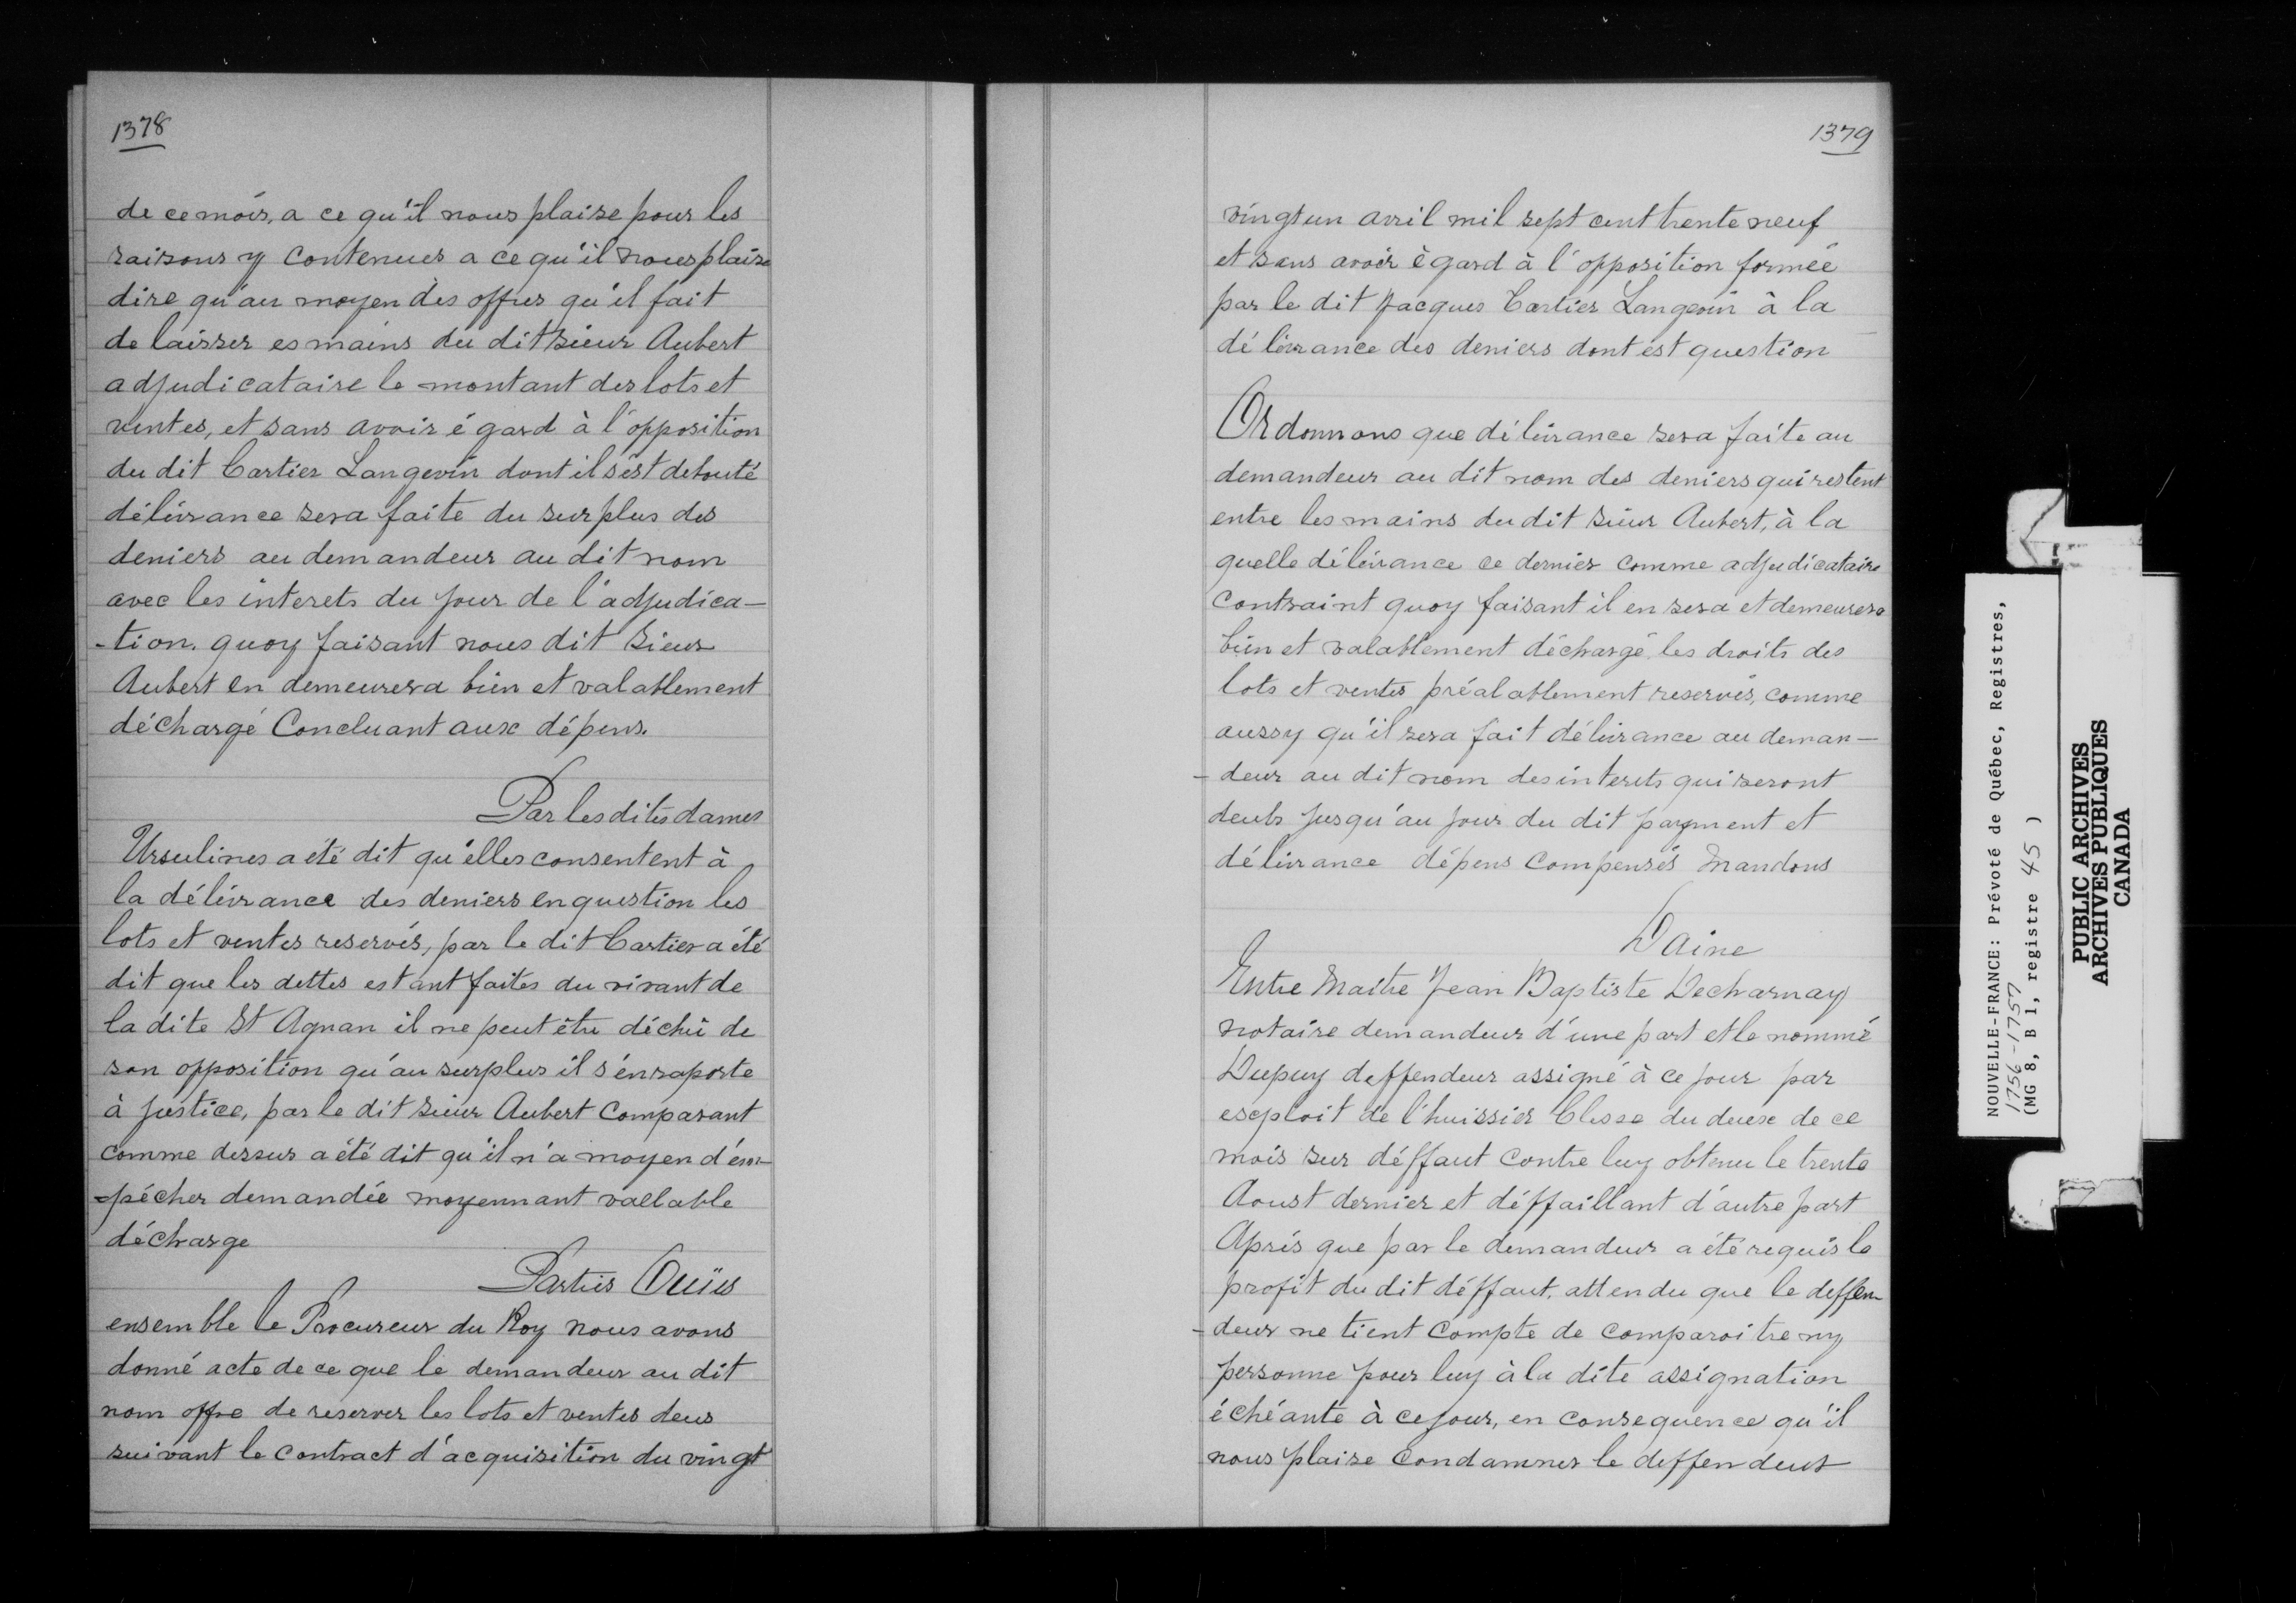 1378
de ce mois, a ce qu'il nous plaise pour les
raisons y contenues a ce qu'il nous plaise
dire qu'au moyen des offres qu'il fait
de laisser es mains du dit sieur Aubert
adjudicataire le montant des lots et
ventes, et sans avoir égard à l'opposition
du dit Cartier Langevin dont il s'est debouté
délivrance sera faite du surplus des
deniers au demandeur au dit nom
avec les interets du jour de l'adjudica-
-tion. quoy faisant nous dit Sieur
Aubert en demeurera bien et valablement
déchargé Concluant aux dépens.
Par les dites dames
Ursulines a été dit qu'elles consentent à
la délivrance des deniers en question les
lots et ventes reservés, par le dit Cartier a été
dit que les dettes estant faites du vivant de
la dite St Agnan il ne peut être déchû de
son opposition qu'au surplus il s'en raporte
à justice, par le dit sieur Aubert comparant
comme dessus a été dit qu'il n'a moyen d'em-
-pécher demandée moyennant vallable
décharge
Parties Ouïes
ensemble le Procureur du Roy nous avons
donné acte de ce que le demandeur au dit
nom offre de reserver les lots et ventes deus
suivant le contract d'acquisition du vingt
1379
vingt un avril mil sept cent trente neuf
et sans avoir égard à l'opposition formée
par le dit Jacques Cartier Langevin à la
délivrance des deniers dont est question
Ordonnons que délivrance sera faite au
demandeur au dit nom des deniers qui restent
entre les mains du dit sieur Aubert, à la
quelle délivrance ce dernier comme adjudicataire
contraint quoy faisant il en sera et demeurera
bien et valablement déchargé, les droits des
lots et ventes préalablement reservés, comme
aussy qu'il sera fait délivrance au deman-
-deur au dit nom des interets qui seront
deubs jusqu'au jour du dit payment et
délivrance dépens compensés Mandons
Daine
Entre Maitre Jean Baptiste Decharnay
notaire demandeur d'une part et le nommé
Dupuy deffendeur assigné à ce jour par
exploit de l'huissier Clesse du deux de ce
mois sur déffaut contre luy obtenu le trente
Aoust dernier et déffaillant d'autre part
Aprés que par le demandeur a été requis le
profit du dit déffaut, attendu que le deffen
-deur ne tient compte de comparoitre ny
personne pour luy à la dite assignation
échéante à ce jour, en consequence qu'il
nous plaise condamner le deffendeur
NOUVELLE-FRANCE: Prévoté de Québec, Registres,
1756-1757
(MG 8, B 1, registre 45 )
PUBLIC ARCHIVES
ARCHIVES PUBLIQUES
CANADA